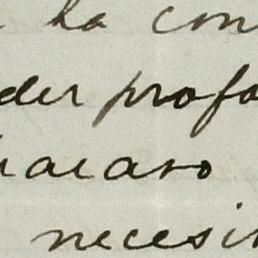 ha con
der profo
racaso
necesi